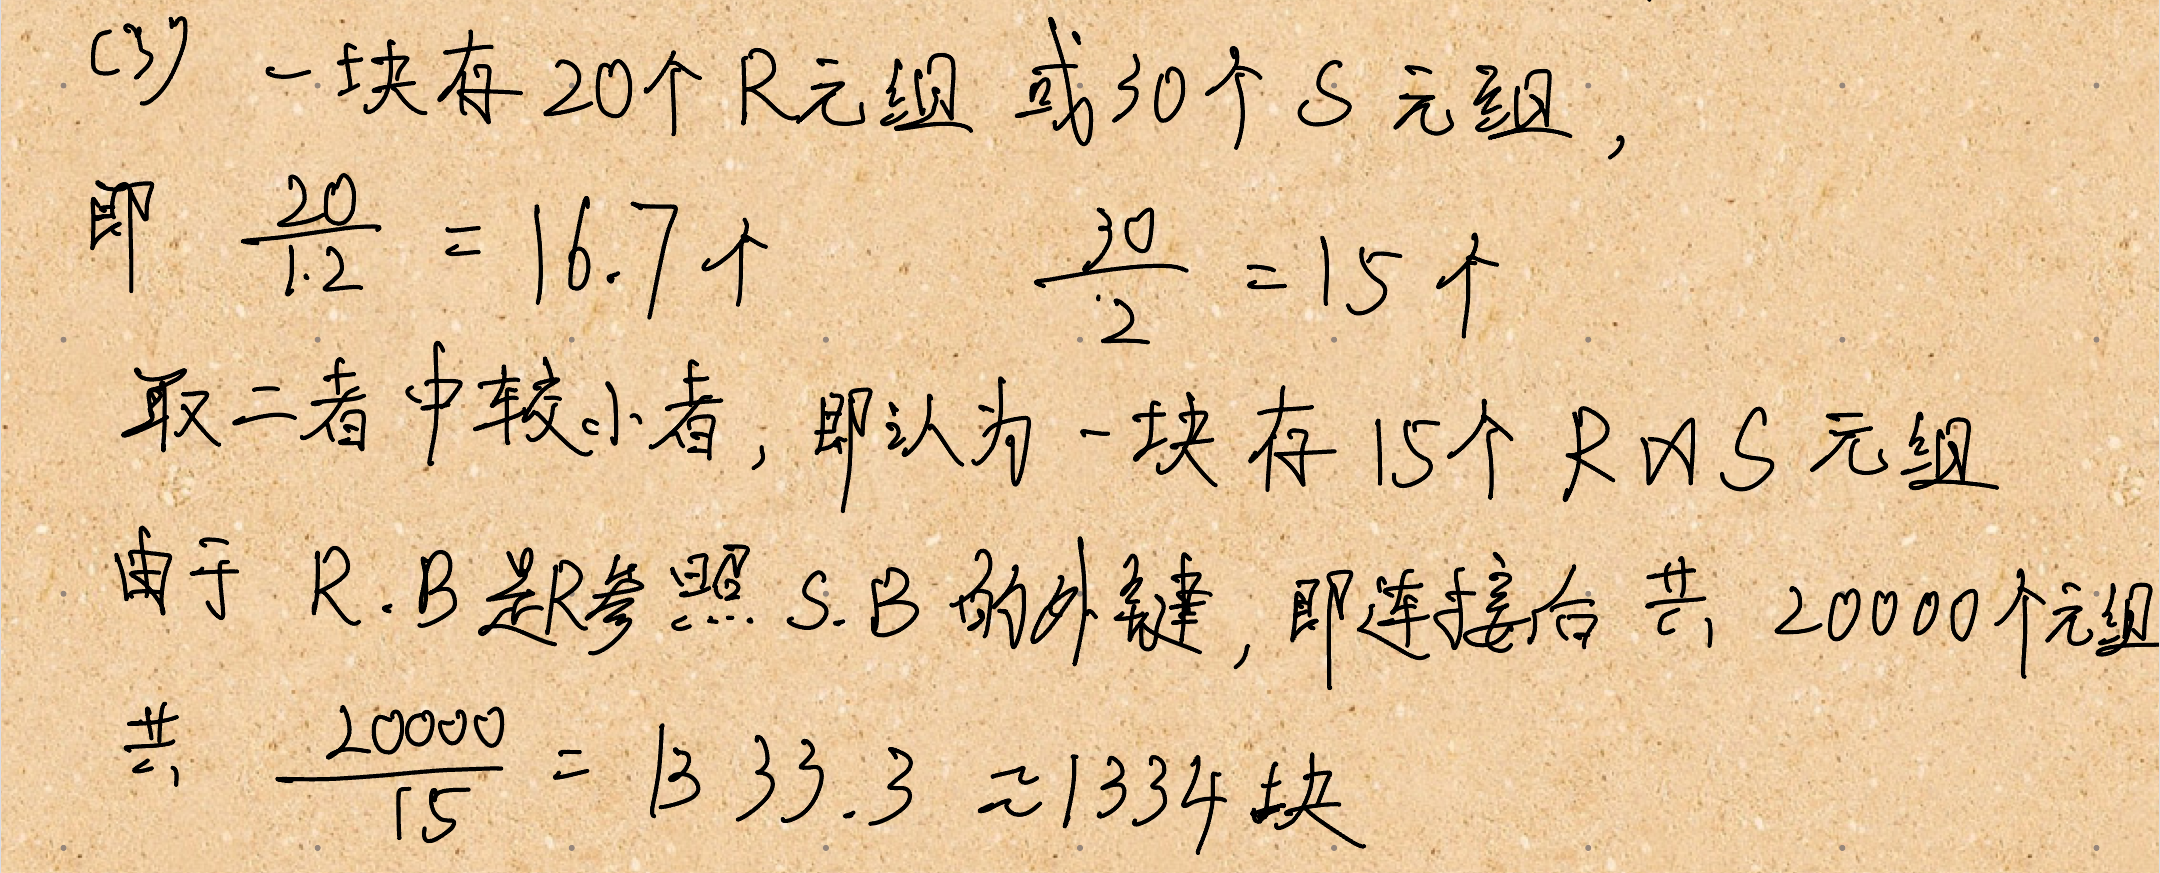 (3) 一块存20个R元组 或30个S元组,
即 20/1.2 = 16.7个 30/2 = 15个
取二者中较小者, 即认为一块存15个 R⋈S元组
由于 R.B是R参照S.B的外键, 即连接后共20000个元组
共 20000/15 = 1333.3 ≈1334块